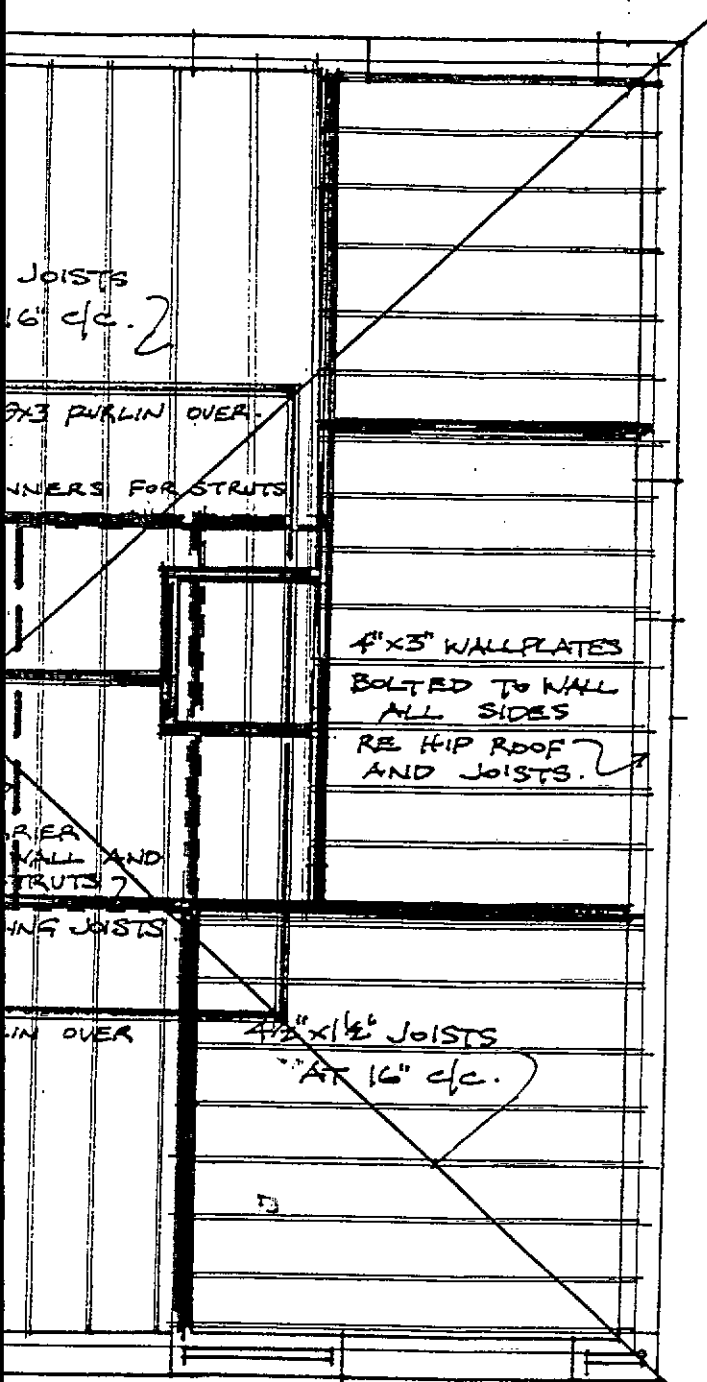 JOISTS
16" c/c.
PURLIN OVER.
FOR STRUTS
4"x3" WALLPLATES
BOLTED TO WALL
ALL SIDES
RE HIP ROOF
AND JOISTS.
WALL AND
STRUTS
JOISTS
OVER
4½"x1½" JOISTS
AT 16" c/c.